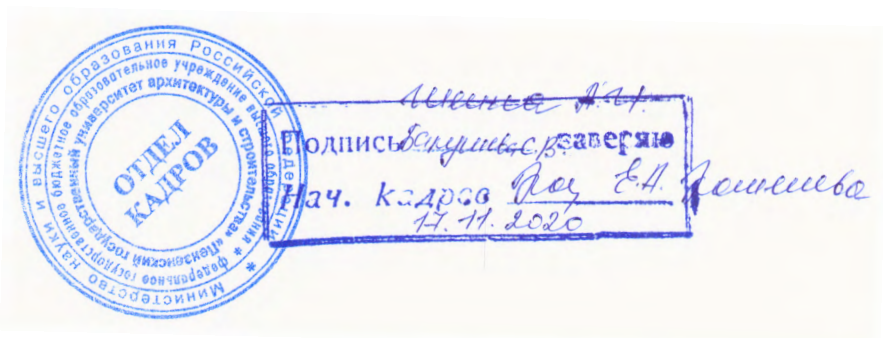 Министерство науки и высшего образования Российской Федерации *
федеральное государственное бюджетное образовательное учреждение высшего образования *
«Пензенский государственный университет архитектуры и строительства»
ОТДЕЛ
КАДРОВ
Подпись заверяю
Нач. кадров Е.А.
17.11.2020